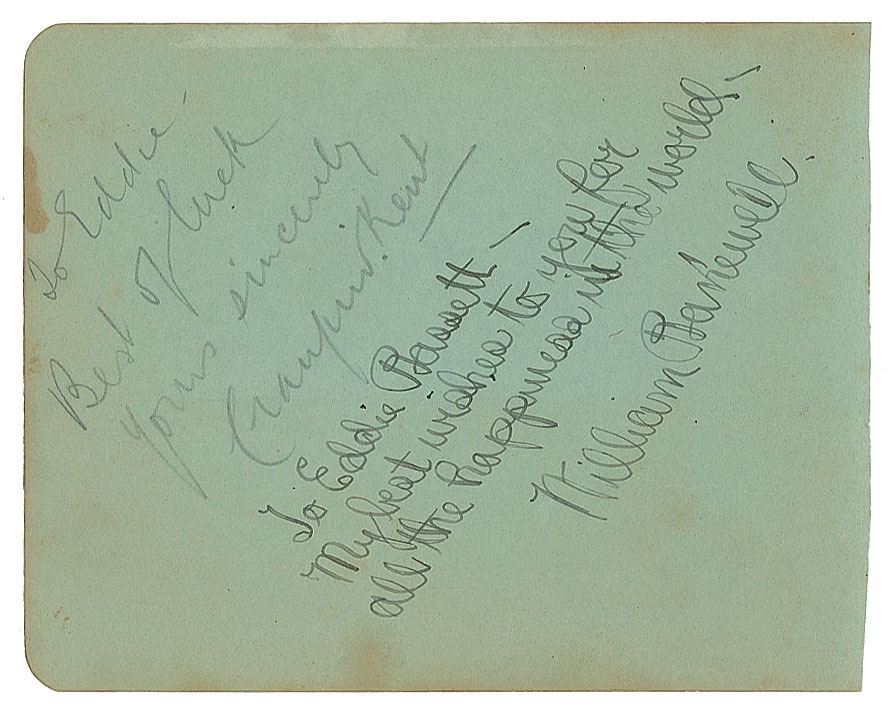 To Eddie -
Best of luck
yours sincerely
Craufurd Kent
To Eddie Bassett -
My best wishes to you for
all the happiness in the world, -
William Bakewell.